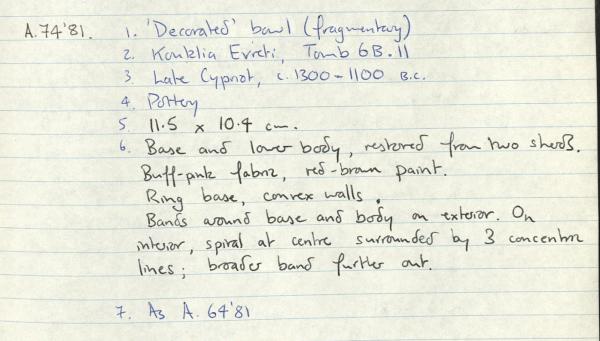 A.74'81. 1. 'Decorated' bowl (fragmentary)
2. Kouklia Evreti, Tomb 6B.11
3. Late Cypriot, c. 1300-1100 B.C.
4. Pottery
5. 11.5 x 10.4 cm.
6. Base and lower body, restored from two sherds.
Buff-pink fabric, red-brown paint.
Ring base, convex walls.
Bands around base and body on exterior. On
interior, spiral at centre surrounded by 3 concentric
lines; broader band further out.
7. As A. 64'81